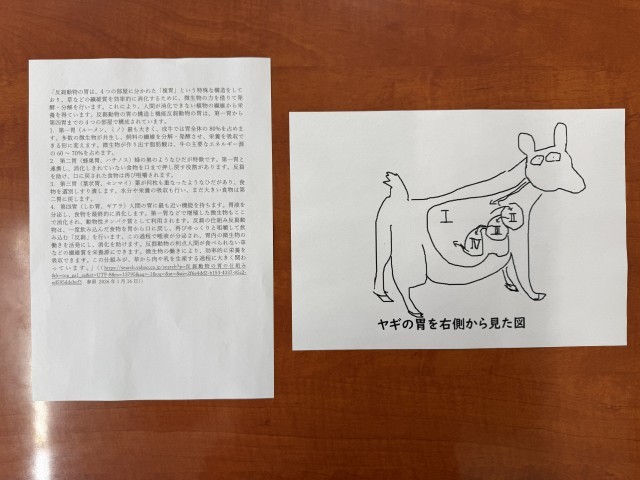 「反芻動物の胃は、4つの部屋に分かれた「複胃」という特殊な構造をして
おり、草などの繊維質を効率的に消化するために、微生物の力を借りて発
酵・分解を行います。これにより、人間が消化できない植物の繊維から栄
養を得ています。反芻動物の胃の構造と機能反芻動物の胃は、第一胃から
第四胃までの4つの部屋で構成されています。
1. 第一胃（ルーメン、ミノ）最も大きく、成牛では胃全体の80%を占めま
す。多数の微生物が共生し、飼料の繊維を分解・発酵させ、栄養を吸収でき
る形に変えます。微生物が作り出す脂肪酸は、牛の主要なエネルギー源
の60～70%を占めます。
2. 第二胃（蜂巣胃、ハチノス）蜂の巣のようなひだが特徴です。第一胃と
連携し、消化しきれていない食物を口まで押し戻す役割があります。反芻
を助け、口に戻された食物は再び咀嚼されます。
3. 第三胃（葉状胃、センマイ）葉が何枚も重なったようなひだがあり、食
物を選別しすり潰します。水分や栄養の吸収も行い、まだ大きい食物は第
二胃に戻します。
4. 第四胃（しわ胃、ギアラ）人間の胃に最も近い機能を持ちます。胃液を
分泌し、食物を最終的に消化します。第一胃などで増殖した微生物もここ
で消化され、動物性タンパク質として利用されます。反芻の仕組み反芻動
物は、一度飲み込んだ食物を胃から口に戻し、再びゆっくりと咀嚼して飲
み込む「反芻」を行います。この過程で唾液が分泌され、胃内の微生物の
働きを活発にし、消化を助けます。反芻動物の利点人間が食べられない草
などの繊維質を栄養源にできます。微生物の働きにより、効率的に栄養を
吸収できます。この仕組みが、草から肉や乳を生産する過程に大きく関わ
っています。」（(https://search.yahoo.co.jp/search?p=反芻動物の胃の仕組み
参照 2026年1月24日))
I
II
III
IV
ヤギの胃を右側から見た図